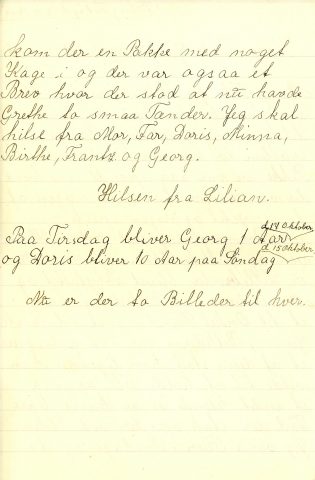 kom der en Pakke med noget
Kage i og der var ogsaa et
Brev hvor der stod at nu havde
Grethe to smaa Tænder. Jeg skal
hilse fra Mor, Far, Doris, Minna,
Birthe, Frantz og Georg.
Hilsen fra Lilian.
d 14 Oktober
Paa Tirsdag bliver Georg 1 Aar
d 15 Oktober
og Doris bliver 10 Aar paa Søndag
Nu er der to Billeder til hver.